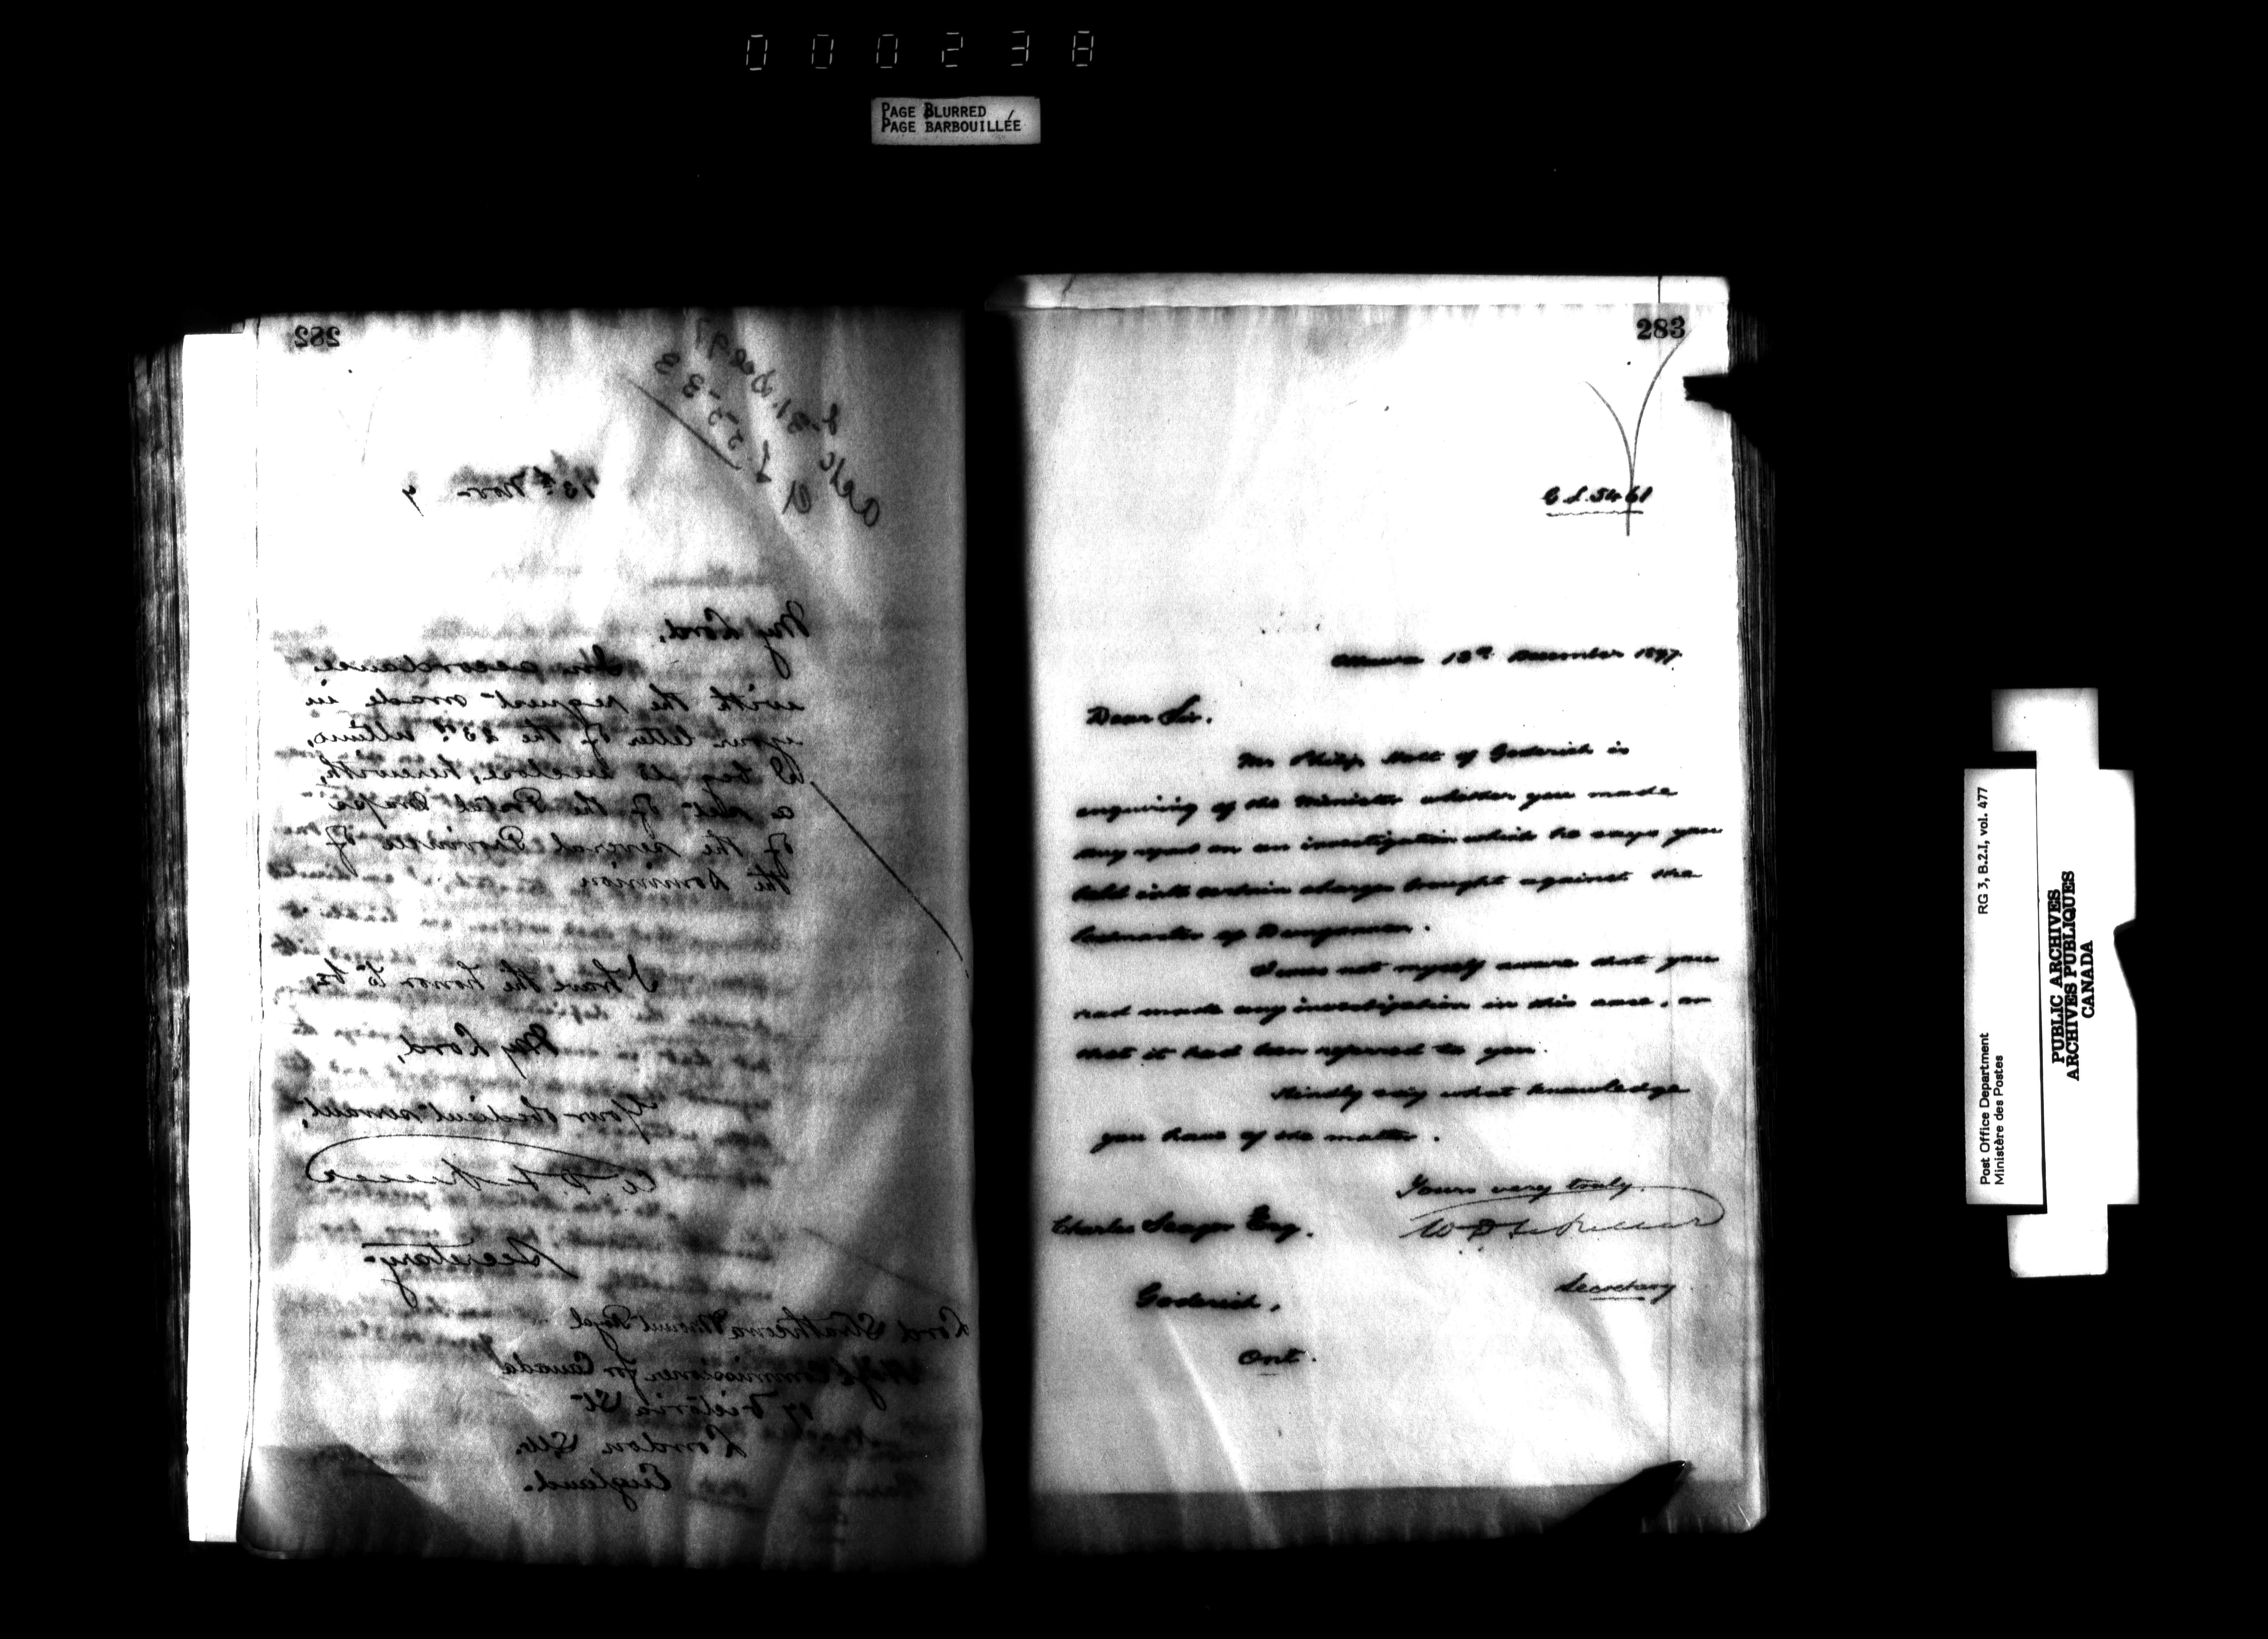 000238
PAGE BLURRED
PAGE BARBOUILLÉE
282
13th Nov. 7
My Lord,
In accordance
with the request made in
your letter of the 23rd ultimo,
I beg to enclose, herewith,
a set of the Postal Maps
of the several Provinces of
the Dominion
I have the honor to be,
My Lord,
Your obedient servant,
Secretary.
Lord Strathcona & Mount Royal
High Commissioner for Canada
17 Victoria St
London S.W.
England.
283
C L. 5461
Ottawa 13th December 1897.
Dear Sir.
Mr Philip Holt of Goderich is
enquiring of the Minister whether you made
any report on an investigation which he says you
held into certain charges brought against the
Postmaster of Dungannon.
I was not myself aware that you
had made any investigation in this case, or
that it had been referred to you.
Kindly say what knowledge
you have of the matter.
Yours very truly.
Charles Seager Esq.
W D LeSueur
Secretary
Goderich,
Ont.
RG 3, B.2.I, vol. 477
Post Office Department
Ministère des Postes
PUBLIC ARCHIVES
ARCHIVES PUBLIQUES
CANADA